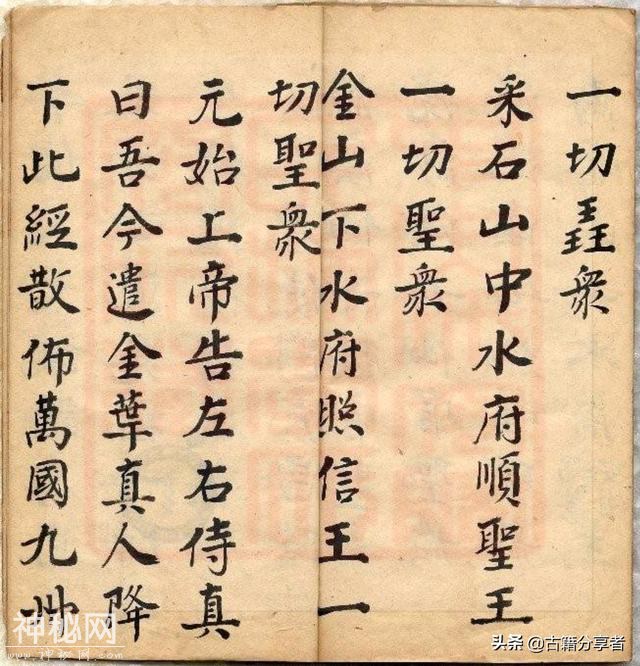 一切衆
采石山中水府順聖王
一切聖衆
金山下水府照信王一
切聖衆
元始上帝告左右侍真
曰吾今遣金葉真人降
下此經散佈萬國九州
神秘网
头条 @古籍分享者